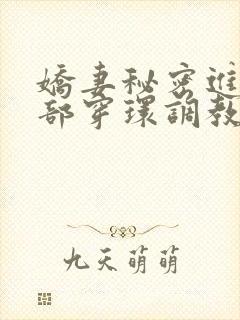 嬌妻秘密進
部穿環調教
九天萌萌